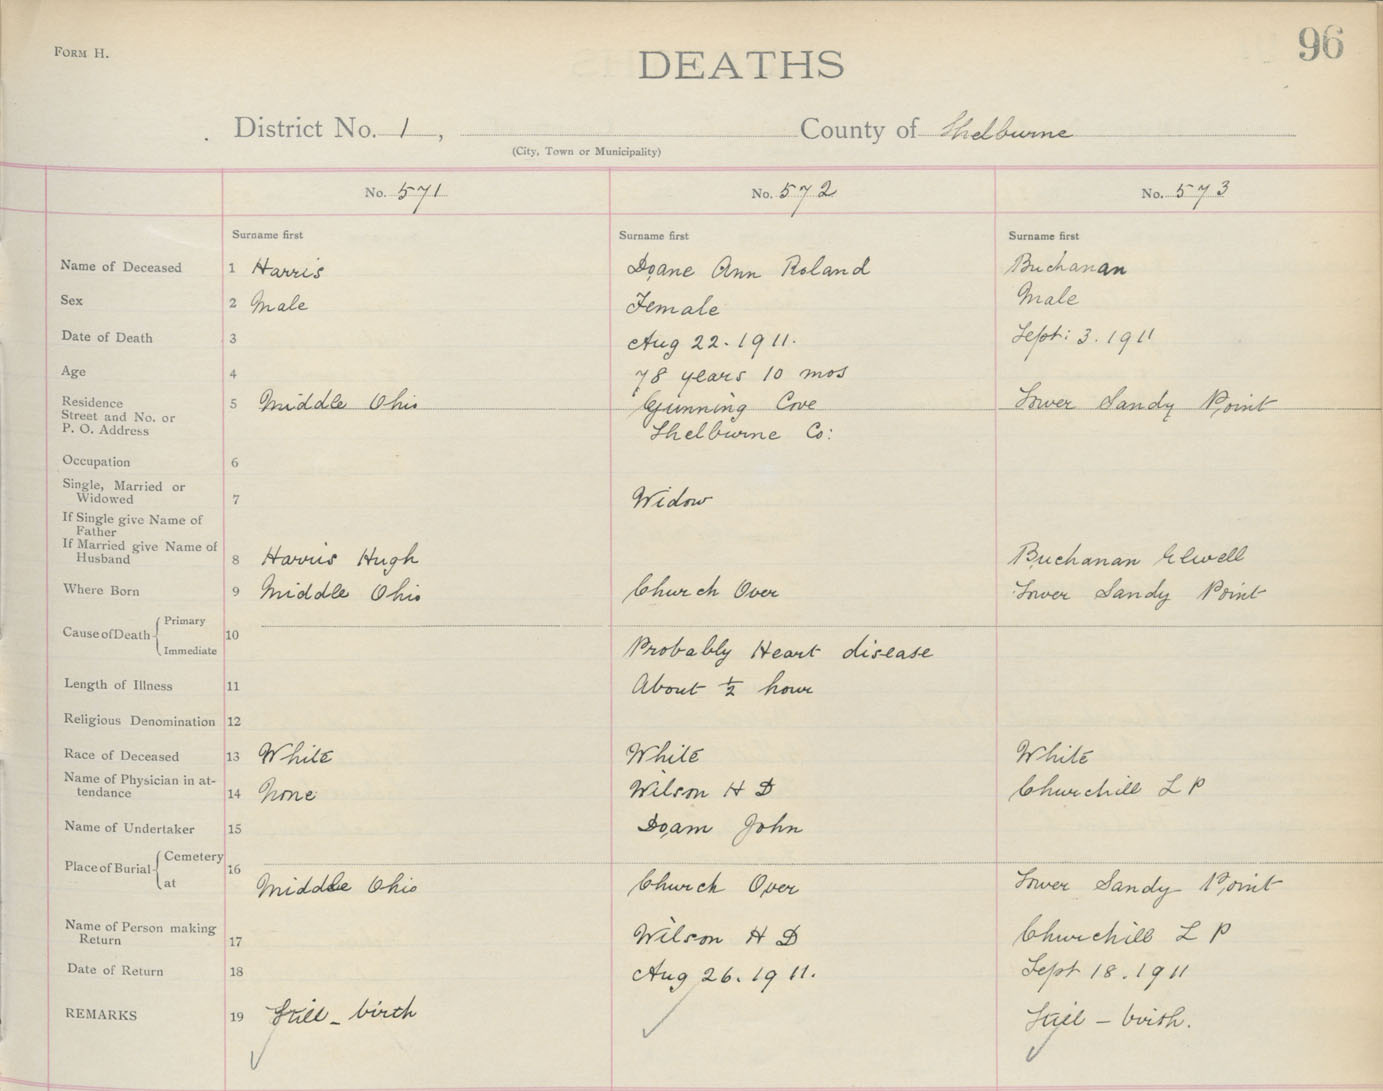 FORM H.
96
DEATHS
District No. 1, County of Shelburne
(City, Town or Municipality)
No. 571 No. 572 No. 573
Surname first Surname first Surname first
Name of Deceased 1 Harris Doane Ann Roland Buchanan
Sex 2 Male Female Male
Date of Death 3 Aug 22. 1911. Sept: 3. 1911
Age 4 78 years 10 mos
Residence 5 Middle Ohio Gunning Cove Lower Sandy Point
Street and No. or
P. O. Address Shelburne Co:
Occupation 6
Single, Married or
Widowed 7 Widow
If Single give Name of
Father
If Married give Name of
Husband 8 Harris Hugh Buchanan Elwell
Where Born 9 Middle Ohio Church Over Lower Sandy Point
Cause of Death Primary 10
Immediate Probably Heart disease
Length of Illness 11 About 1/2 hour
Religious Denomination 12
Race of Deceased 13 White White White
Name of Physician in at-
tendance 14 None Wilson H D Churchill L P
Name of Undertaker 15 Doam John
Place of Burial Cemetery 16
at Middle Ohio Church Over Lower Sandy Point
Name of Person making
Return 17 Wilson H D Churchill L P
Date of Return 18 Aug 26. 1911. Sept 18. 1911
REMARKS 19 Still - birth Still - birth.